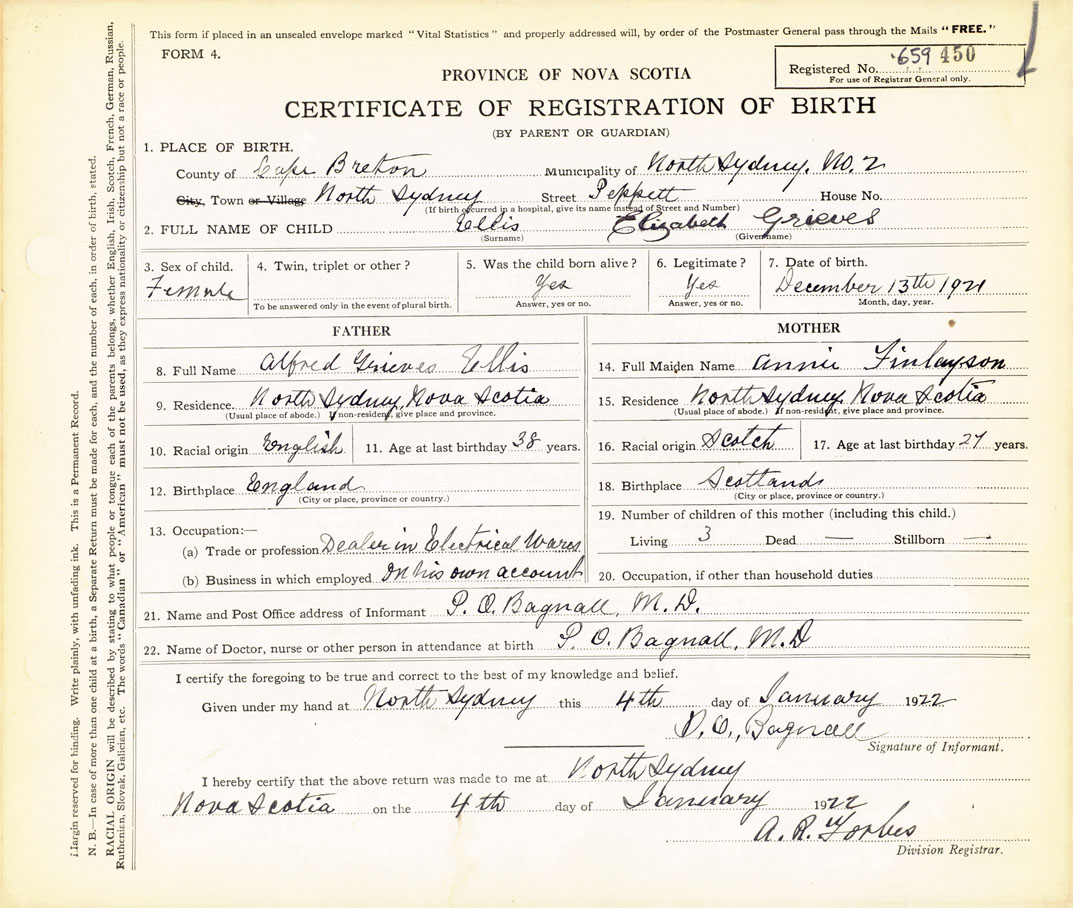 This form if placed in an unsealed envelope marked "Vital Statistics" and properly addressed will, by order of the Postmaster General pass through the Mails "FREE."
FORM 4.
Registered No. 659 450
For use of Registrar General only.
PROVINCE OF NOVA SCOTIA
CERTIFICATE OF REGISTRATION OF BIRTH
(BY PARENT OR GUARDIAN)
1. PLACE OF BIRTH.
County of Cape Breton Municipality of North Sydney. No. 2
City, Town or Village North Sydney Street Peppett House No.
(If birth occurred in a hospital, give its name instead of Street and Number)
2. FULL NAME OF CHILD Ellis Elizabeth Grieves
(Surname) (Given name)
3. Sex of child. 4. Twin, triplet or other? 5. Was the child born alive? 6. Legitimate? 7. Date of birth.
Female Yes Yes December 13th 1921
To be answered only in the event of plural birth. Answer, yes or no. Answer, yes or no. Month, day, year.
FATHER
8. Full Name Alfred Grieves Ellis
9. Residence. North Sydney, Nova Scotia
(Usual place of abode.) If non-resident, give place and province.
10. Racial origin English 11. Age at last birthday 38 years.
12. Birthplace England
(City or place, province or country.)
13. Occupation:—
(a) Trade or profession Dealer in Electrical Wares
(b) Business in which employed On his own account
MOTHER
14. Full Maiden Name Annie Finlayson
15. Residence North Sydney, Nova Scotia
(Usual place of abode.) If non-resident, give place and province.
16. Racial origin Scotch 17. Age at last birthday 27 years.
18. Birthplace Scotland
(City or place, province or country.)
19. Number of children of this mother (including this child.)
Living 3 Dead — Stillborn —
20. Occupation, if other than household duties
21. Name and Post Office address of Informant P. O. Bagnall, M. D.
22. Name of Doctor, nurse or other person in attendance at birth P. O. Bagnall, M. D
I certify the foregoing to be true and correct to the best of my knowledge and belief.
Given under my hand at North Sydney this 4th day of January 1922
P. O. Bagnall
Signature of Informant.
I hereby certify that the above return was made to me at North Sydney
Nova Scotia on the 4th day of January 1922
A. R. Forbes
Division Registrar.
Margin reserved for binding. Write plainly, with unfading ink. This is a Permanent Record.
N. B.—In case of more than one child at a birth, a Separate Return must be made for each, and the number of each, in order of birth, stated.
RACIAL ORIGIN will be described by stating to what people or tongue each of the parents belongs, whether English, Irish, Scotch, French, German, Russian,
Ruthenian, Slovak, Galician, etc. The words "Canadian" or "American" must not be used, as they express nationality or citizenship but not a race or people.